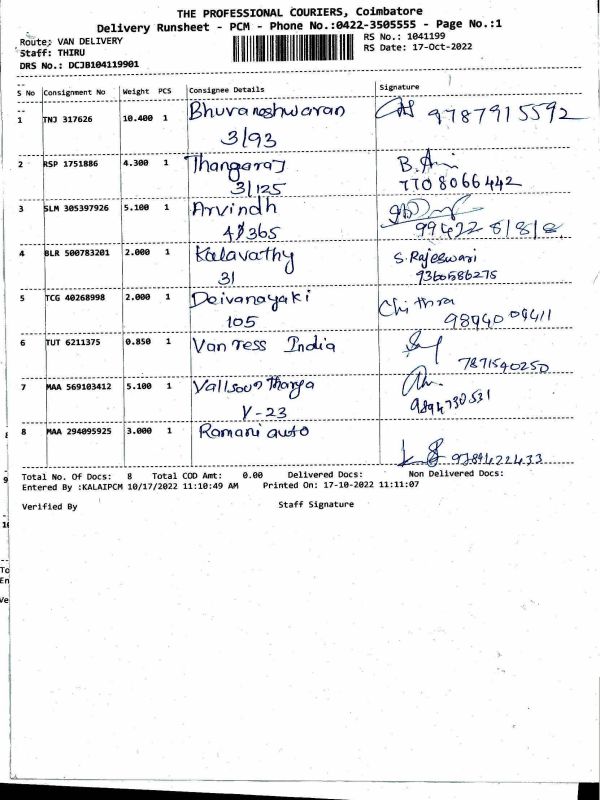 THE PROFESSIONAL COURIERS, Coimbatore
Delivery Runsheet - PCM - Phone No.:0422-3505555 - Page No.:1
Route: VAN DELIVERY
RS No.: 1041199
Staff: THIRU
RS Date: 17-Oct-2022
DRS No.: DCJB104119901
S No Consignment No Weight PCS Consignee Details Signature
1 TNJ 317626 10.400 1 Bhuvaneshwaran 9787915592
3/93
2 RSP 1751886 4.300 1 Thangaraj
3/125 7708066442
3 SLM 305397926 5.100 1 Arvindh
365 99422 8/8/8
4 BLR 500783201 2.000 1 Kalavathy S.Rajeswari
31 9360586275
5 TCG 40268998 2.000 1 Deivanayaki Chithra
105 9894009411
6 TUT 6211375 0.850 1 Van Tess India
7871540250
7 MAA 569103412 5.100 1
V-23 9894730531
8 MAA 294095925 3.000 1 Ramani auto
9789422433
Total No. Of Docs: 8 Total COD Amt: 0.00 Delivered Docs: Non Delivered Docs:
Entered By :KALAIPCM 10/17/2022 11:10:49 AM Printed On: 17-10-2022 11:11:07
Verified By Staff Signature